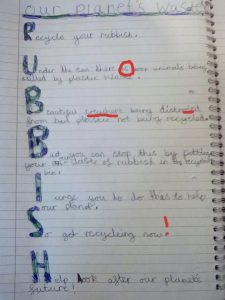 our planet's Waste
Recycle your rubbish.
Under the sun there is poor animals being
killed by plastic
Beautiful being
from but plastic not being recycled.
But you can stop this by putting
your of rubbish in the recycling
bin.
I urge you to do this to help
our planet.
So get recycling now!
Help look after our planet's
future!